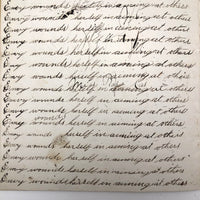 Envy wounds herself in aiming at others
Envy wounds herself in aiming at others
Envy wounds herself in aiming at others
Envy wounds herself in aiming at others
Envy wounds herself in aiming at others
Envy wounds herself in aiming at others
Envy wounds herself in aiming at others
Envy wounds herself in aiming at others
Envy wounds herself in aiming at others
Envy wounds herself in aiming at others
Envy wounds herself in aiming at others
Envy wounds herself in aiming at others
Envy wounds herself in aiming at others
Envy wounds herself in aiming at others